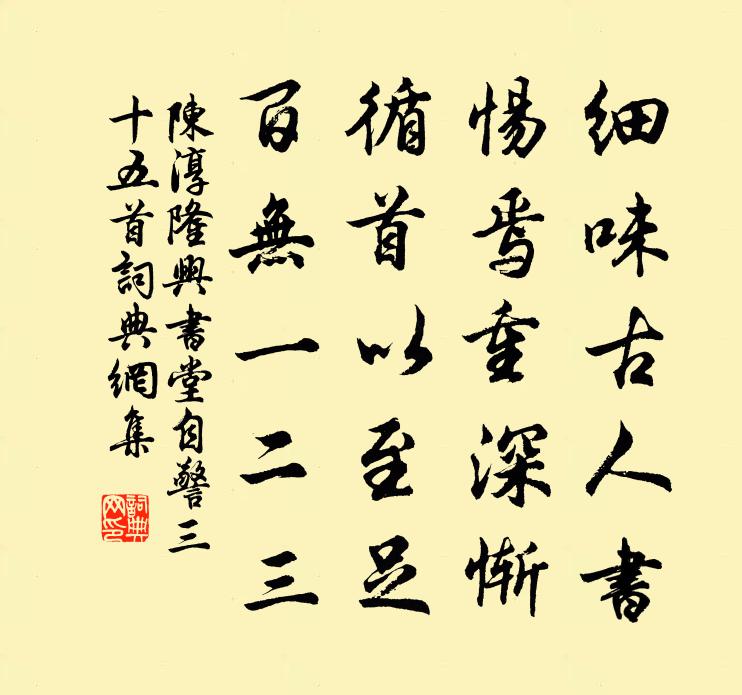 細味古人書
惕焉重深慚
循首以至足
百無一二三
陳淳隆興書堂自警三
十五首詞典網集
詞典
网印